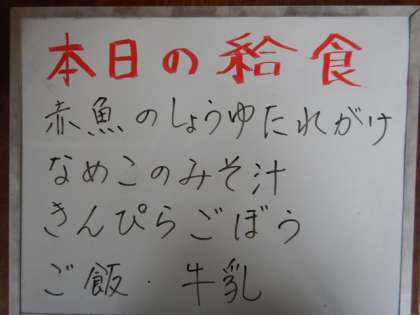 本日の給食
赤魚のしょうゆたれがけ
なめこのみそ汁
きんぴらごぼう
ご飯・牛乳